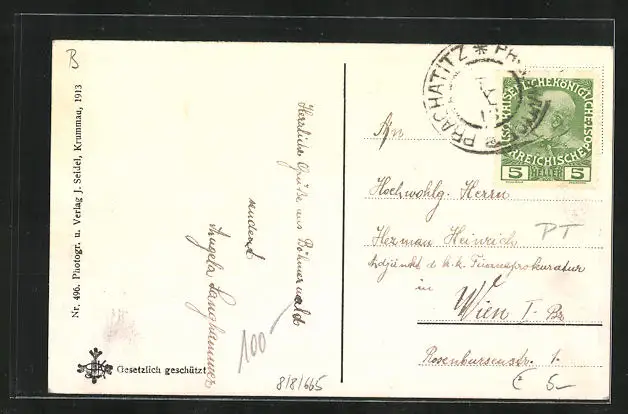 B
Nr. 496. Photogr. u. Verlag J. Seidel, Krummau, 1913
Herzliche Grüße aus Böhmerwald
sendend
Angela Langhammer
100
8/8/665
Gesetzlich geschützt
PRACHATITZ * PRACHATICE
KAISERLICHE KÖNIGLICHE
ÖSTERREICHISCHE POST
5 HELLER 5
An
Hochwohlg. Herrn
Herman Heinrich
Adjunkt d k. k. Finanzprokuratur
in
Wien I. Bz
Rosenbursenstr. 1.
PT
5-